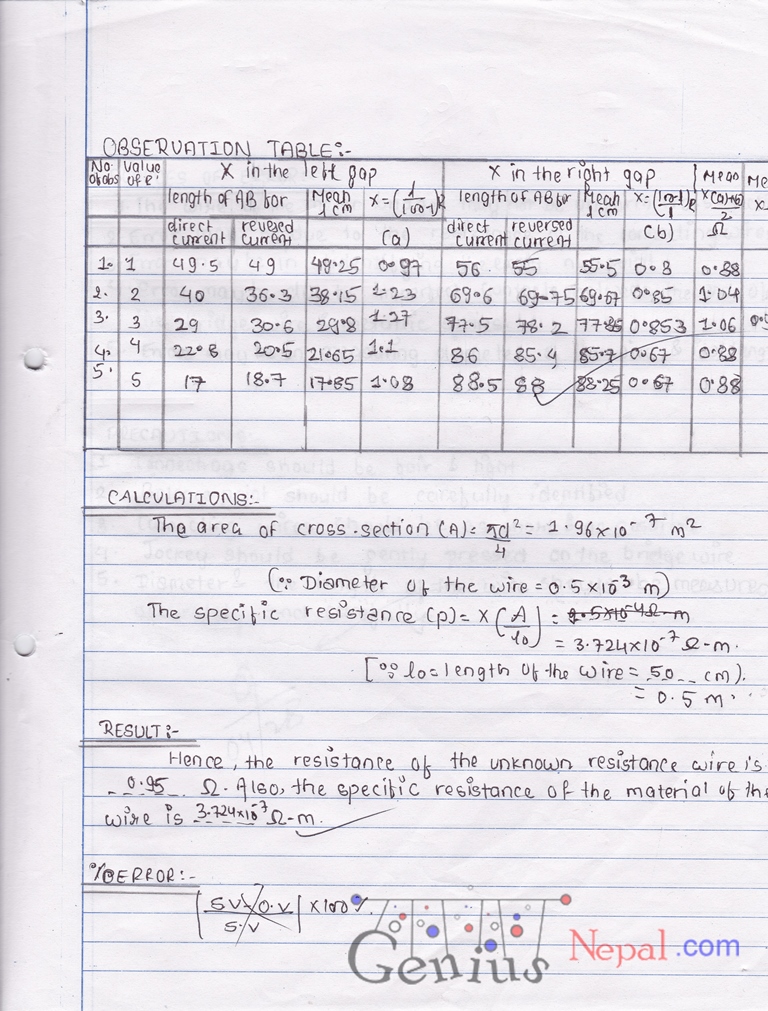 OBSERVATION TABLE:-
No. of obs Value of R X in the left gap X in the right gap Mean
length of AB for Mean l cm X=(l/100-l)R length of AB for Mean l cm X=(100-l/l)R X(a+b)/2
direct current reversed current (a) direct current reversed current (b) Ω
1. 1 49.5 49 49.25 0.97 56 55 55.5 0.8 0.88
2. 2 40 36.3 38.15 1.23 69.6 69.75 69.67 0.85 1.04
3. 3 29 30.6 29.8 1.27 77.5 78.2 77.85 0.853 1.06
4. 4 22.8 20.5 21.65 1.1 86 85.4 85.7 0.67 0.88
5. 5 17 18.7 17.85 1.08 88.5 88 88.25 0.67 0.88
CALCULATIONS:-
The area of cross-section (A)= πd²/4 = 1.96x10⁻⁷ m²
(∵ Diameter of the wire = 0.5x10⁻³ m)
The specific resistance (ρ)= X(A/l₀) =
= 3.724x10⁻⁷ Ω-m.
[∵ lo=length of the wire = 50 cm).
= 0.5 m.
RESULT:-
Hence, the resistance of the unknown resistance wire is
0.95 Ω. Also, the specific resistance of the material of the
wire is 3.724x10⁻⁷ Ω-m.
% ERROR:-
|S.V-O.V/S.V| x100%
Genius Nepal.com